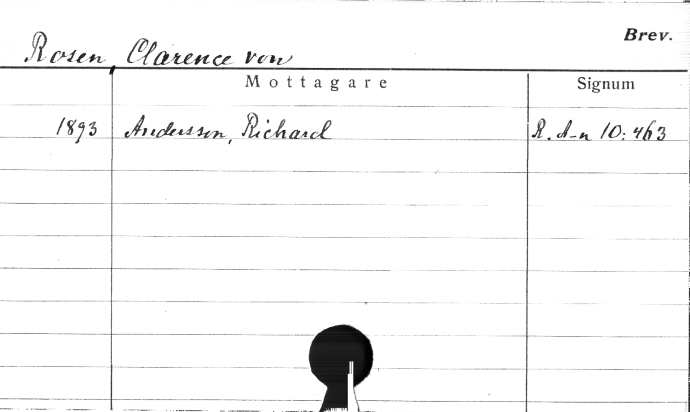 Brev.
Rosen, Clarence von
Mottagare Signum
1893 Andersson, Richard R. A-n 10:463